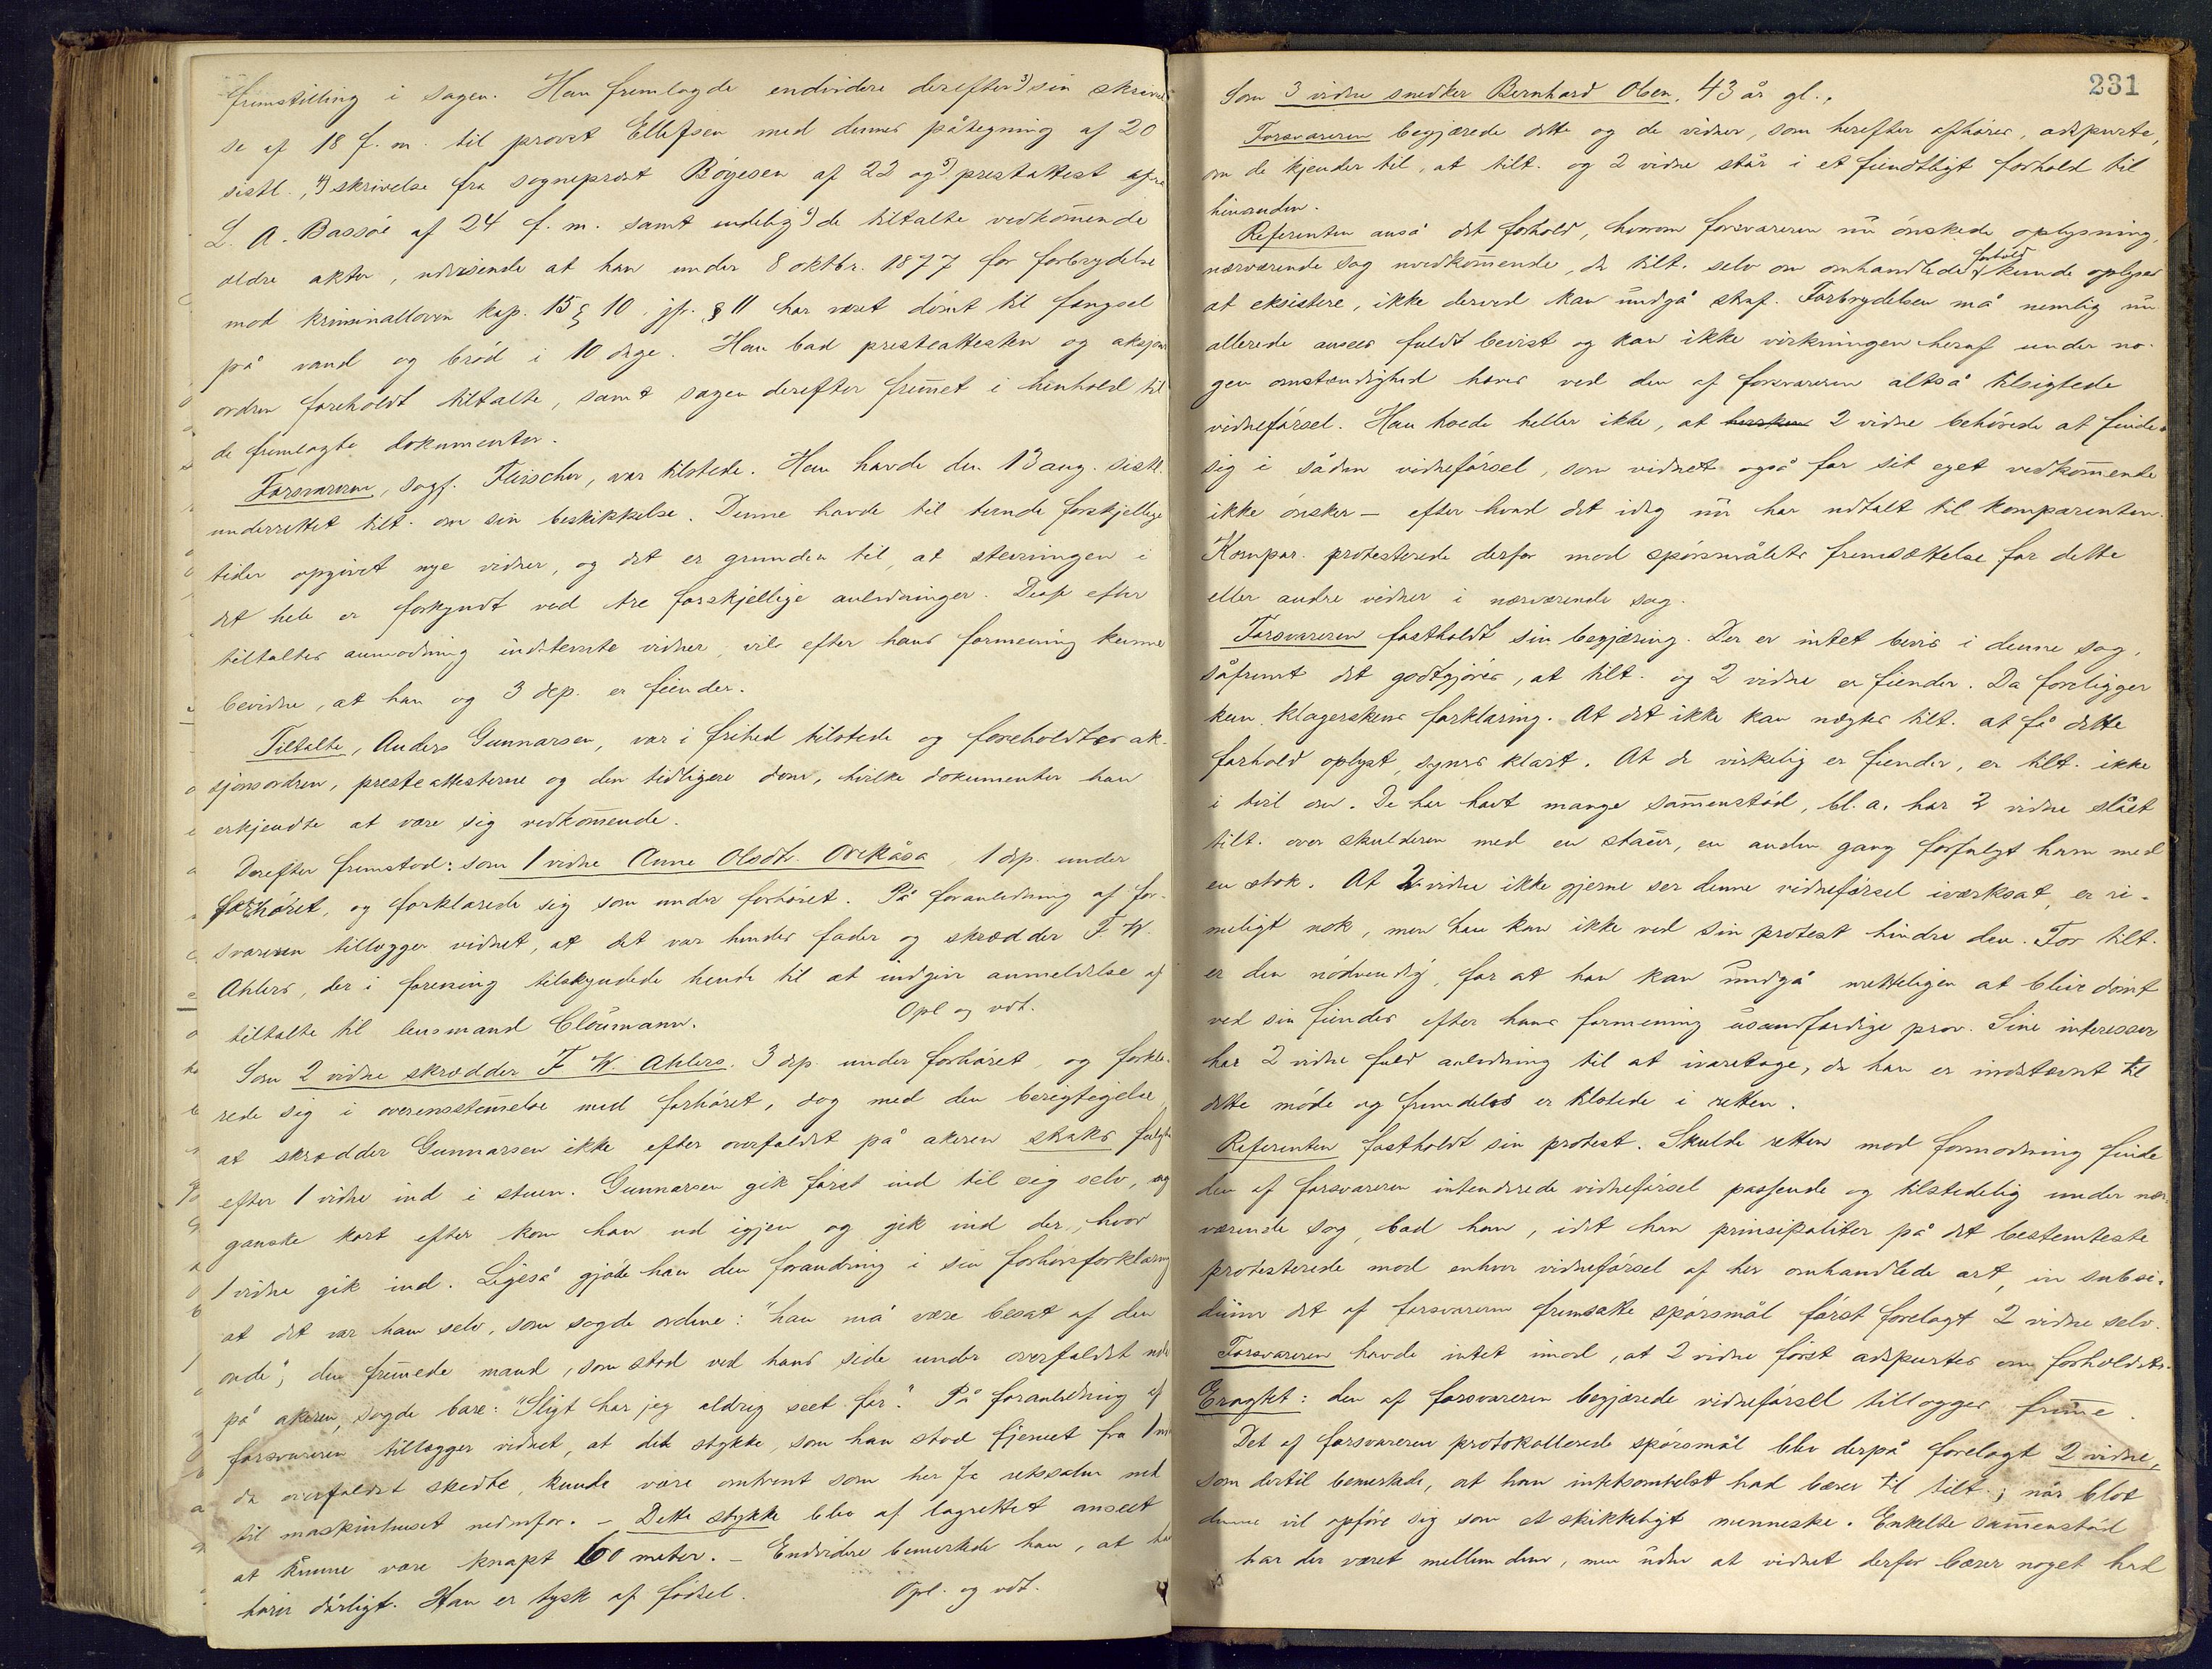 fremstilling i sagen. Han fremlagde endvidere derefter 3) sin skrivel-
se af 18 f. m. til provst Ellefsen med dennes påtegning af 20
sistl., 4) skrivelse fra sogneprest Börgesen af 22 og 5) prestattest af
L. A. Bassöe af 24 f. m. samt endelig 6) de tiltalte vedkom̄ende
ældre akter, udvisende at han under 8 oktbr. 1877 for forbrydelse
mod kriminalloven kap. 15 § 10 jfr. § 11 har været dömt til fængsel
på vand og bröd i 10 dage. Han bad presteattesten og aksjons-
ordren foreholdt tiltalte, samt sagen derefter frem̄et i henhold til
de fremlagte dokumenter.
Forsvareren, sagf. Fleischer, var tilstede. Han havde den 13 aug. sistl.
underrettet tilt. om sin beskikkelse. Denne havde til ternde forskjellige
tider opgivet nye vidner, og det er grunden til, at stevningen i
det hele er forkyndt ved tre forskjellige anledninger. De efter
tiltaltes anmodning indstevnte vidner, vil efter hans formening kunne
bevidne, at han og 3 dep. er fiender.
Tiltalte, Anders Gunnarsen, var i frihed tilstede og foreholdtes ak-
sjonsordren, presteattesterne og den tidligere dom, hvilke dokumenter han
erkjendte at være sig vedkom̄ende.
Derefter fremstod: som 1 vidne Anne Olsdtr. Orekåsa, 1 dep. under
forhöret, og forklarede sig som under forhöret. På foranledning af for-
svareren tillægger vidnet, at det var hendes fader og skrædder F. W.
Ahlers, der i forening tilskyndede hende til at indgive anmeldelse af
tiltalte til lensmand Cloumann. Opl og vdt.
Som 2 vidne skrædder F. W. Ahlers, 3 dep under forhöret, og forkla-
rede sig i overensstem̄else med forhöret, dog med den berigtigelse,
at skrædder Gunnarsen ikke efter overfaldet på akeren straks fulgte
efter 1 vidne ind i stuen. Gunnarsen gik först ind til sig selv, og
ganske kort efter kom han ud igjen og gik ind der, hvor
1 vidne gik ind. Ligeså gjorde han den forandring i sin forhörsforklaring
at det var ham selv, som sagde ordene: "han må være besat af den
onde"; den frem̄ede mand, som stod ved hans side under overfaldet ude
på akeren, sagde bare: "Sligt har jeg aldrig seet för." På foranledning af
forsvareren tillægger vidnet, at det stykke, som han stod fjernet fra 1
da overfaldet skedte, kunde være omtrent som her fra retssalen ned
til maskinhuset nedenfor. – Dette stykke blev af lagrettet anseet
at kunne være knapt 60 meter. – Endvidere bemerkede han, at han
hörer dårligt. Han er tysk af födsel. Opl. og vdt.
231
Som 3 vidne snedker Bernhard Olsen, 43 år gl.,
Forsvareren begjærede dette og de vidner, som herefter afhöres, adspurte,
om de kjender til, at tilt. og 2 vidne står i et fiendtligt forhold til
hinanden.
Referenten anså det forhold, hvorom forsvareren nu önskede oplysning,
nærværende sag uvedkom̄ende, da tilt. selv om omhandlede forhold kunde oplyses
at eksistere, ikke derved kan undgå straf. Forbrydelsen må nemlig nu
allerede ansees fuldt bevist og kan ikke virkningen heraf under no-
gen omstændighed hæves ved den af forsvareren altså tilsigtede
vidneförsel. Han troede heller ikke, at 2 vidne behövede at finde
sig i sådan vidneförsel, som vidnet også for sit eget vedkom̄ende
ikke önsker – efter hvad det idag nu har udtalt til komparenten.
Kompar. protesterede derfor mod spörsmålets fremsættelse for dette
eller andre vidner i nærværende sag.
Forsvareren fastholdt sin begjæring. Der er intet bevis i denne sag,
såfremt det godtgjöres, at tilt. og 2 vidne er fiender. Da foreligger
kun klagerskens forklaring. At det ikke kan nægtes tilt. at få dette
forhold oplyst, synes klart. At de virkelig er fiender, er tilt. ikke
i tvil om. De har havt mange sam̄enstöd, bl. a. har 2 vidne slået
tilt. over skulderen med en staur, en anden gang forfulgt ham med
en stok. At 2 vidne ikke gjerne ser denne vidneförsel iværksat, er ri-
meligt nok, men han kan ikke ved sin protest hindre den. For tilt.
er den nödvendig, for at han kan undgå uretteligen at blive dömt
ved sin fiendes efter hans formening usandfærdige prov. Sine interesser
har 2 vidne fuld anledning til at ivaretage, da han er indstevnt til
dette möde og fremdeles er tilstede i retten.
Referenten fastholdt sin protest. Skulde retten mod formodning finde
den af forsvareren intenderede vidneförsel passende og tilstedelig under nær-
værende sag, bad han, idet han prinsipaliter på det bestemteste
protesterede mod enhver vidneförsel af her omhandlede art, in subsi-
dium det af forsvareren fremsatte spörsmål först forelagt 2 vidne selv.
Forsvareren havde intet imod, at 2 vidne först adspurtes om forholdet.
Eragtet: den af forsvareren begjærede vidneförsel tillægges frem̄e.
Det af forsvareren protokollerede spörsmål blev derpå forelagt 2 vidne,
som dertil bemerkede, at han intetsomhelst had bærer til tilt., når blot
denne vil opföre sig som et skikkeligt menneske. Enkelte sam̄enstöd
har der været mellem dem, men uden at vidnet derfor bærer noget had